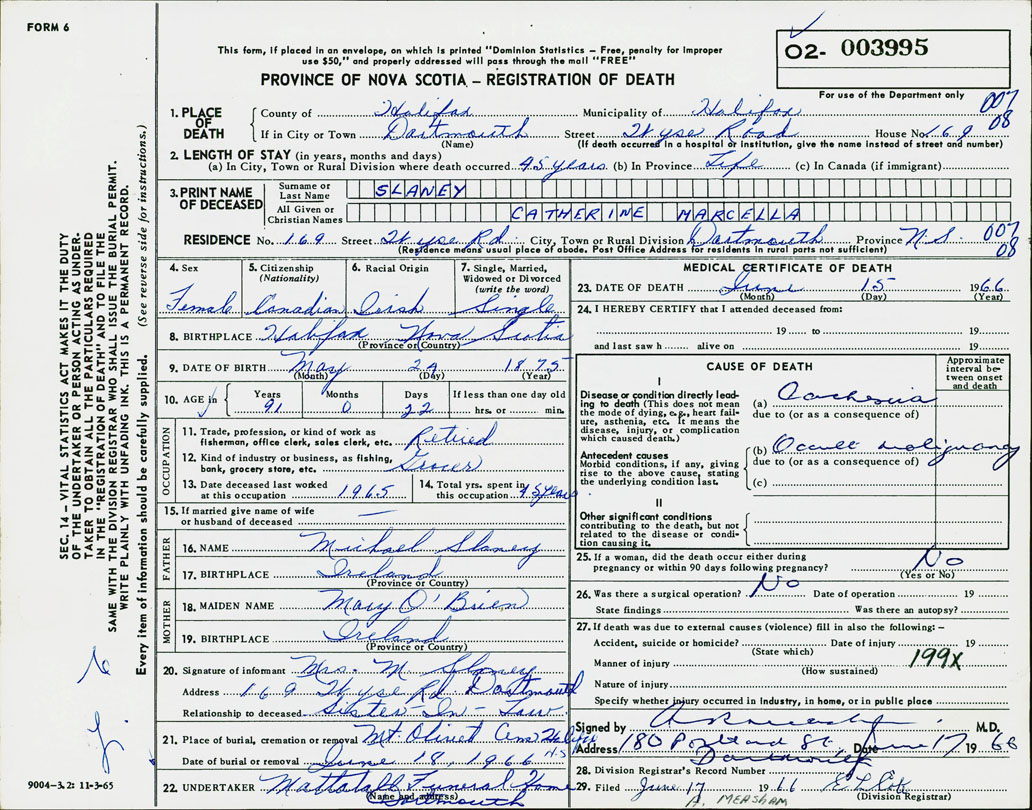 FORM 6
This form, if placed in an envelope, on which is printed "Dominion Statistics – Free, penalty for improper
use $50," and properly addressed will pass through the mail "FREE"
PROVINCE OF NOVA SCOTIA – REGISTRATION OF DEATH
02- 003995
For use of the Department only
007
08
1. PLACE OF DEATH
County of Halifax Municipality of Halifax
If in City or Town Dartmouth Street Wyse Road House No. 169
(Name) (If death occurred in a hospital or institution, give the name instead of street and number)
2. LENGTH OF STAY (in years, months and days)
(a) In City, Town or Rural Division where death occurred 45 years (b) In Province Life (c) In Canada (if immigrant)
3. PRINT NAME OF DECEASED
Surname or Last Name SLANEY
All Given or Christian Names CATHERINE MARCELLA
RESIDENCE No. 169 Street Wyse Rd. City, Town or Rural Division Dartmouth Province N.S. 007
(Residence means usual place of abode. Post Office Address for residents in rural parts not sufficient) 08
4. Sex Female
5. Citizenship (Nationality) Canadian
6. Racial Origin Irish
7. Single, Married, Widowed or Divorced (write the word) Single
8. BIRTHPLACE Halifax Nova Scotia
(Province or Country)
9. DATE OF BIRTH May 24 1875
(Month) (Day) (Year)
10. AGE in Years 91 Months 0 Days 22 If less than one day old hrs. or min.
OCCUPATION
11. Trade, profession, or kind of work as
fisherman, office clerk, sales clerk, etc. Retired
12. Kind of industry or business, as fishing,
bank, grocery store, etc. Grocer
13. Date deceased last worked
at this occupation 1965
14. Total yrs. spent in
this occupation 45 years
15. If married give name of wife
or husband of deceased —
FATHER
16. NAME Michael Slaney
17. BIRTHPLACE Ireland
(Province or Country)
MOTHER
18. MAIDEN NAME Mary O'Brien
19. BIRTHPLACE Ireland
(Province or Country)
20. Signature of informant Mrs. M Slaney
Address 169 Wyse Rd Dartmouth
Relationship to deceased Sister-In-Law
21. Place of burial, cremation or removal Mt. Olivet Cem Halifax
N.S.
Date of burial or removal June 18, 1966
22. UNDERTAKER Mattatall Funeral Home
(Name and address) Dartmouth
MEDICAL CERTIFICATE OF DEATH
23. DATE OF DEATH June 15 1966
(Month) (Day) (Year)
24. I HEREBY CERTIFY that I attended deceased from:
19 to 19
and last saw h alive on 19
CAUSE OF DEATH
Approximate interval between onset and death
I
Disease or condition directly lead-
ing to death (This does not mean
the mode of dying, e.g., heart fail-
ure, asthenia, etc. It means the
disease, injury, or complication
which caused death.)
(a) Cachexia
due to (or as a consequence of)
Antecedent causes
Morbid conditions, if any, giving
rise to the above cause, stating
the underlying condition last.
(b) Occult malignancy
due to (or as a consequence of)
(c)
II
Other significant conditions
contributing to the death, but not
related to the disease or condi-
tion causing it.
25. If a woman, did the death occur either during
pregnancy or within 90 days following pregnancy? No
(Yes or No)
26. Was there a surgical operation? No Date of operation 19
State findings Was there an autopsy?
27. If death was due to external causes (violence) fill in also the following: –
Accident, suicide or homicide? Date of injury 19
(State which)
Manner of injury 199X
(How sustained)
Nature of injury
Specify whether injury occurred in industry, in home, or in public place
Signed by M.D.
Address 180 Portland St. Date June 17 1966
Dartmouth
28. Division Registrar's Record Number
29. Filed June 17 1966
A. MEASHAM (Division Registrar)
SEC. 14 – VITAL STATISTICS ACT MAKES IT THE DUTY
OF THE UNDERTAKER OR PERSON ACTING AS UNDER-
TAKER TO OBTAIN ALL THE PARTICULARS REQUIRED
IN THE "REGISTRATION OF DEATH" AND TO FILE THE
SAME WITH THE DIVISION REGISTRAR WHO SHALL ISSUE THE BURIAL PERMIT.
WRITE PLAINLY WITH UNFADING INK. THIS IS A PERMANENT RECORD.
Every item of information should be carefully supplied. (See reverse side for instructions.)
9004-3.2: 11-3-65